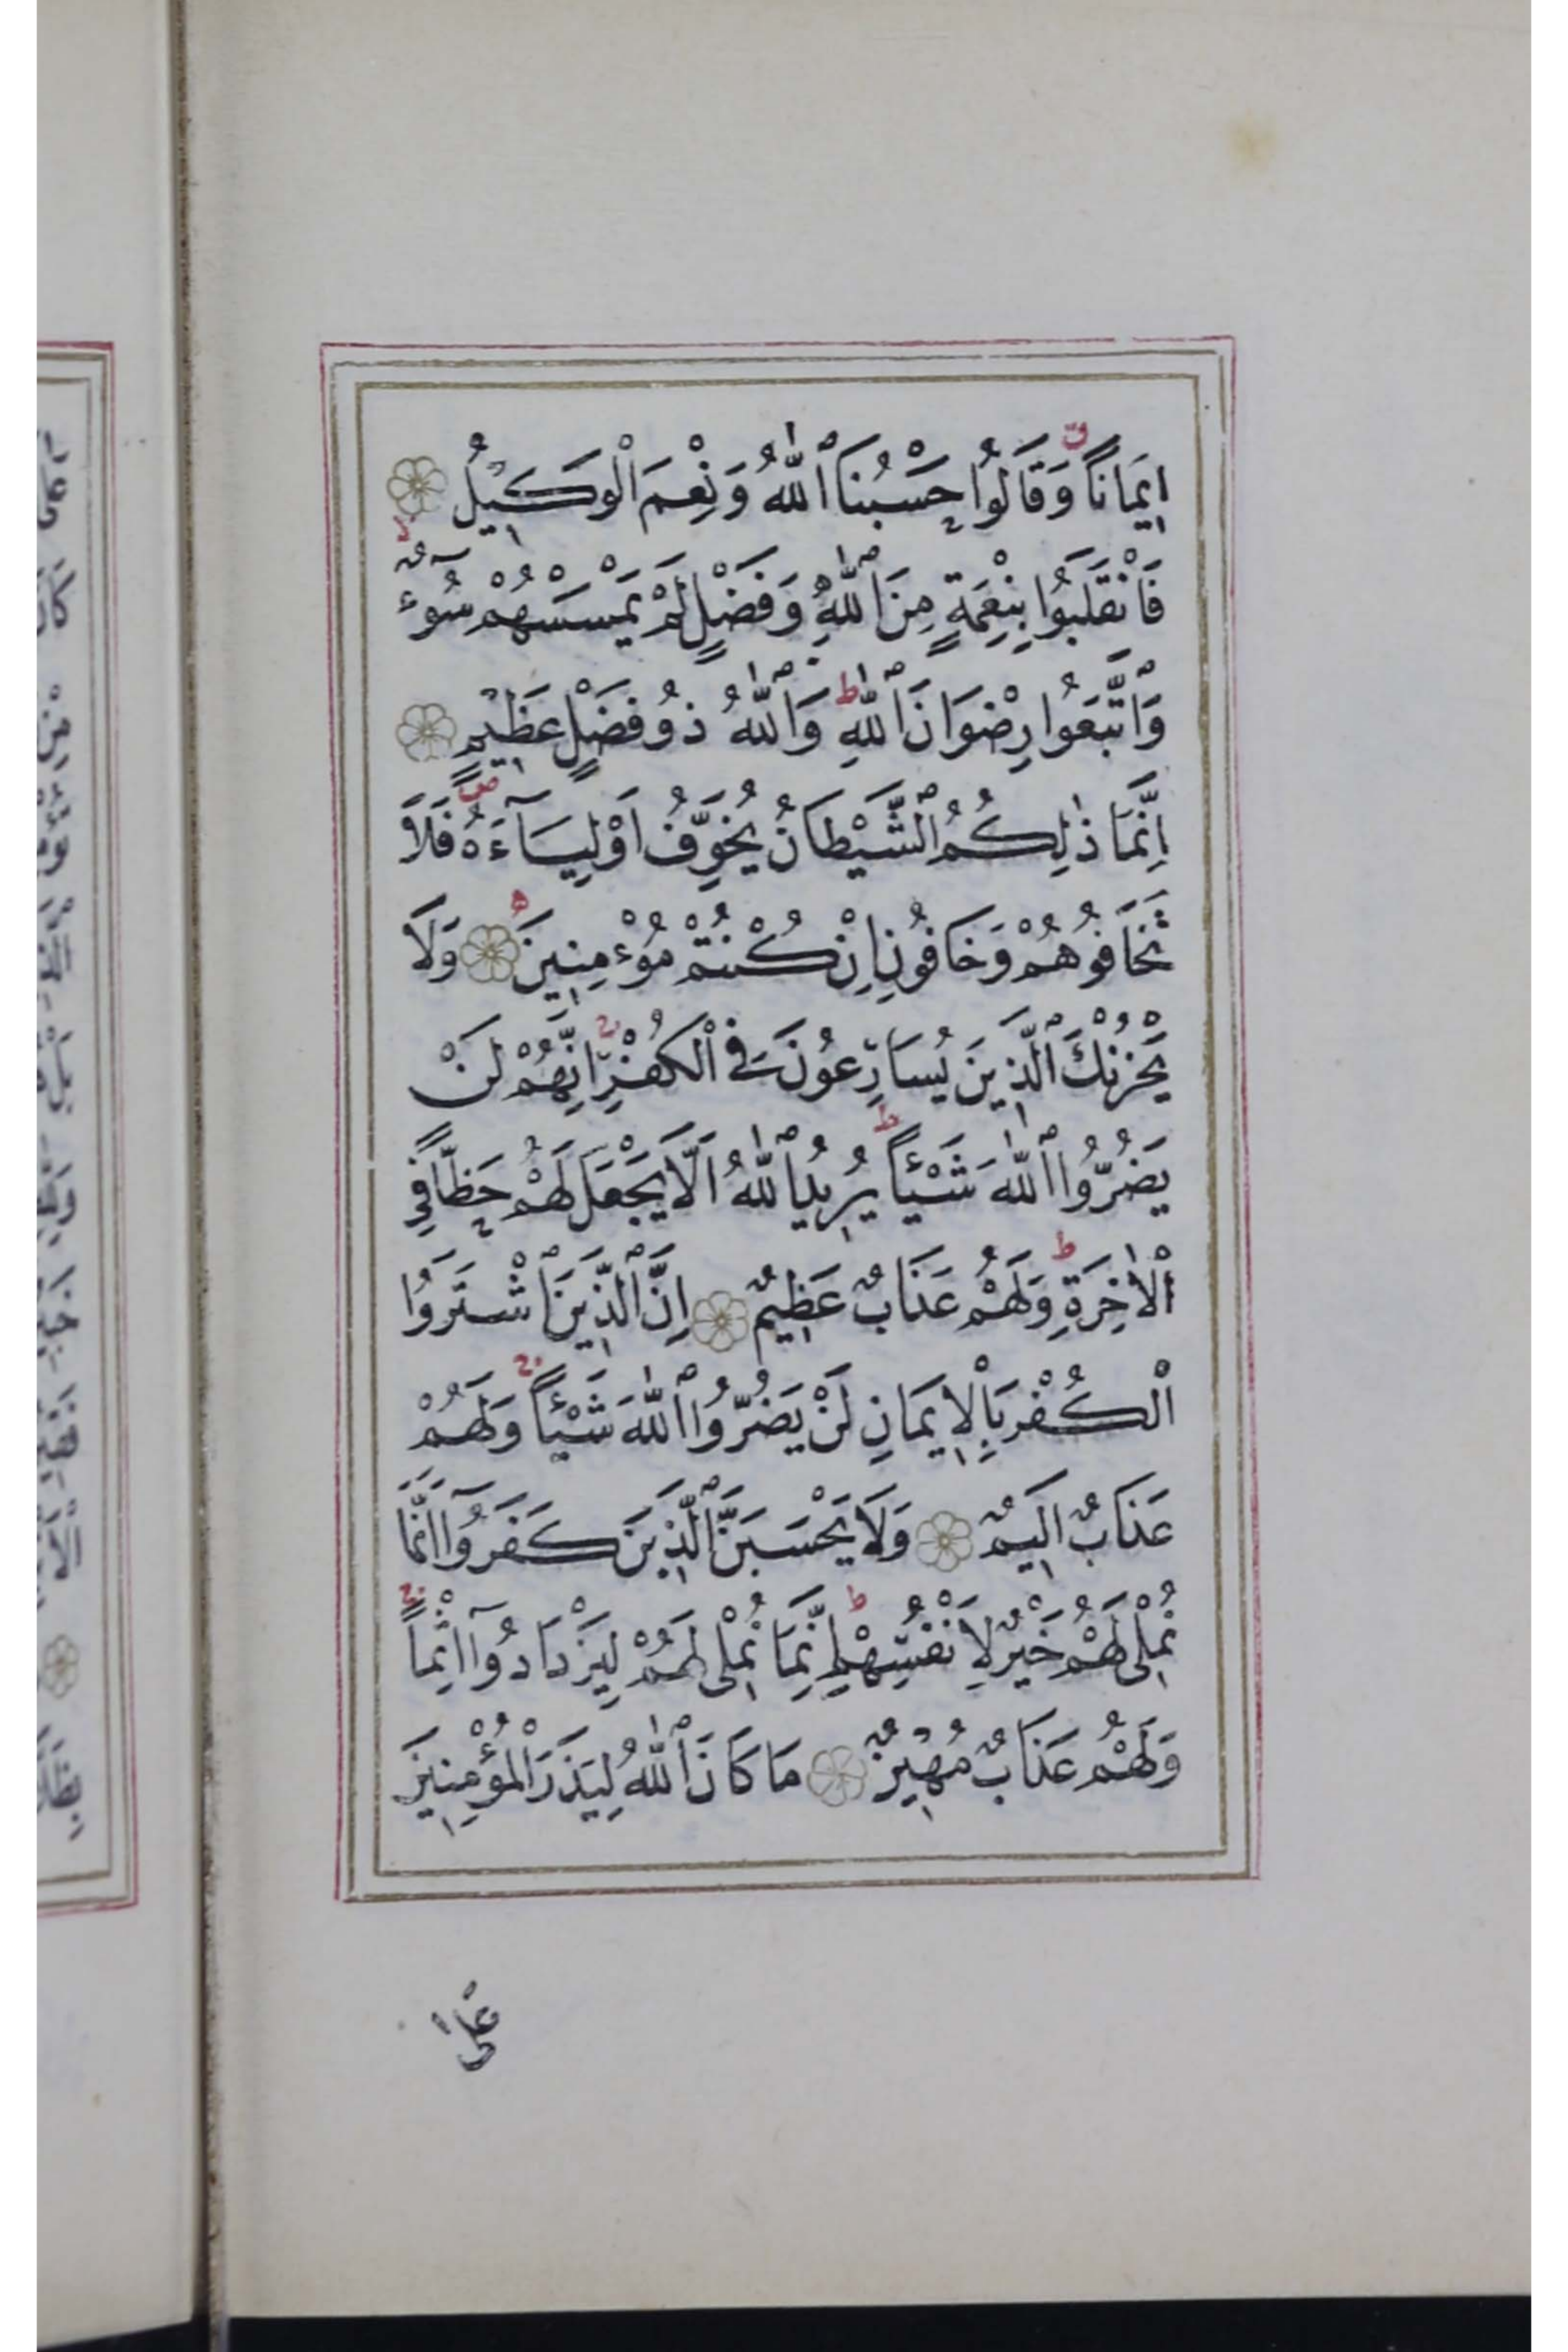 اِيمَاناً وَقَالُوا حَسْبُنَا ٱللّٰهُ وَنِعْمَ الْوَكِيلُ
فَانْقَلَبُوا بِنِعْمَةٍ مِنَ ٱللّٰهِ وَفَضْلٍ لَمْ يَمْسَسْهُمْ سُوٓءٌ
وَٱتَّبَعُوا رِضْوَانَ ٱللّٰهِ وَٱللّٰهُ ذُو فَضْلٍ عَظِيمٍ
اِنَّمَا ذٰلِكُمُ ٱلشَّيْطَانُ يُخَوِّفُ اَوْلِيَآءَهُ فَلَا
تَخَافُوهُمْ وَخَافُونِ اِنْ كُنْتُمْ مُؤْمِنِينَ وَلَا
يَحْزُنْكَ ٱلَّذِينَ يُسَارِعُونَ فِي الْكُفْرِ اِنَّهُمْ لَنْ
يَضُرُّوا ٱللّٰهَ شَيْـًٔا يُرِيدُ ٱللّٰهُ اَلَّا يَجْعَلَ لَهُمْ حَظًّا فِي
الْاٰخِرَةِ وَلَهُمْ عَذَابٌ عَظِيمٌ اِنَّ ٱلَّذِينَ ٱشْتَرَوُا
الْكُفْرَ بِالْاِيمَانِ لَنْ يَضُرُّوا ٱللّٰهَ شَيْـًٔا وَلَهُمْ
عَذَابٌ اَلِيمٌ وَلَا يَحْسَبَنَّ ٱلَّذِينَ كَفَرُوٓا اَنَّمَا
نُمْلِى لَهُمْ خَيْرٌ لِاَنْفُسِهِمْ اِنَّمَا نُمْلِى لَهُمْ لِيَزْدَادُوٓا اِثْماً
وَلَهُمْ عَذَابٌ مُهِينٌ مَا كَانَ ٱللّٰهُ لِيَذَرَ الْمُؤْمِنِينَ
عَلٰى